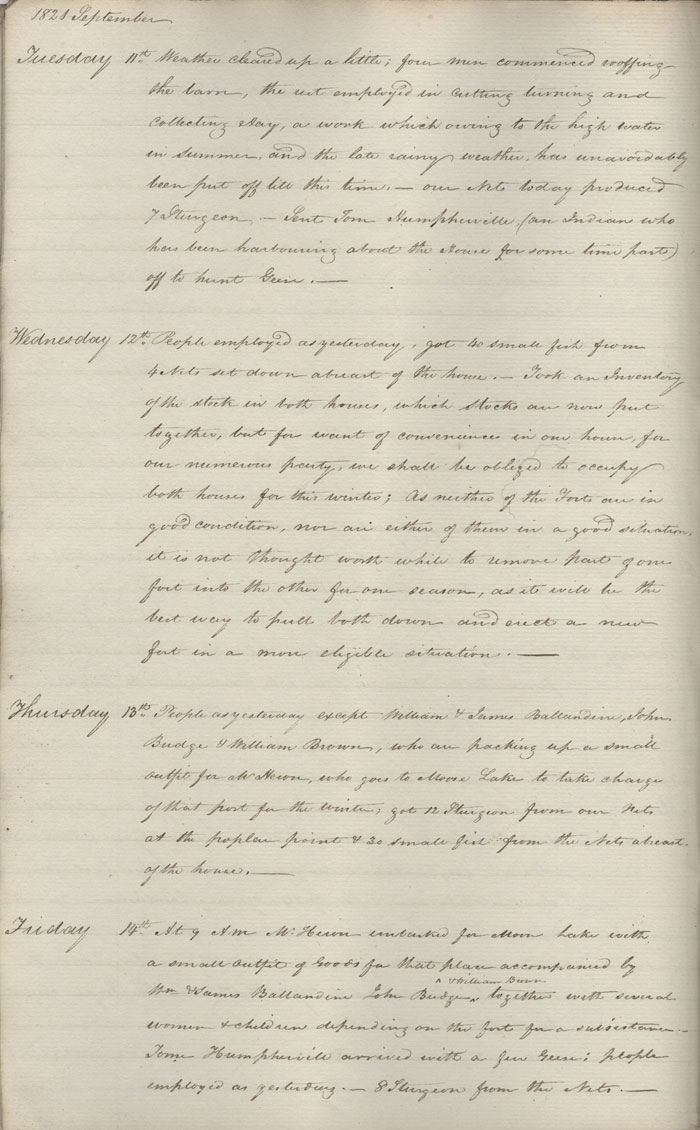 1821 September
Tuesday 11th Weather cleared up a little; four men commenced rooffing
the barn, the rest employed in cutting turning and
collecting Hay, a work which owing to the high water
in summer, and the late rainy weather, has unavoidably
been put off till this time. — our Nets today produced
7 Sturgeon — Sent Tom Humpherville (an Indian who
has been harbouring about the House for some time past)
off to hunt Geese. —
Wednesday 12th People employed as yesterday, got 40 small fish from
4 Nets set down abreast of the house. — Took an Inventory
of the stock in both houses, which stocks are now put
together, but for want of conveniences in one house, for
our numerous party, we shall be obliged to occupy
both houses for this winter; As neither of the Forts are in
good condition, nor are either of them in a good situation,
it is not thought worth while to remove part of one
fort into the other for one season, as it will be the
best way to pull both down and erect a new
fort in a more eligible situation. —
Thursday 13th People as yesterday except William & James Ballandine, John
Budge & William Brown, who are packing up a small
outfit for Mr Heron, who goes to Moose Lake to take charge
of that post for the winter; got 12 Sturgeon from our Nets
at the poplar point & 30 small fish from the Nets abreast
of the house. —
Friday 14th At 9 Am Mr Heron embarked for Moose Lake with
a small outfit of Goods for that place accompanied by
Wm & James Ballandine John Budge ^ & William Brown together with several
women & children depending on the fort for a subsistance —
Tom Humpherville arrived with a few Geese; people
employed as yesterday. — 8 Sturgeon from the Nets. —